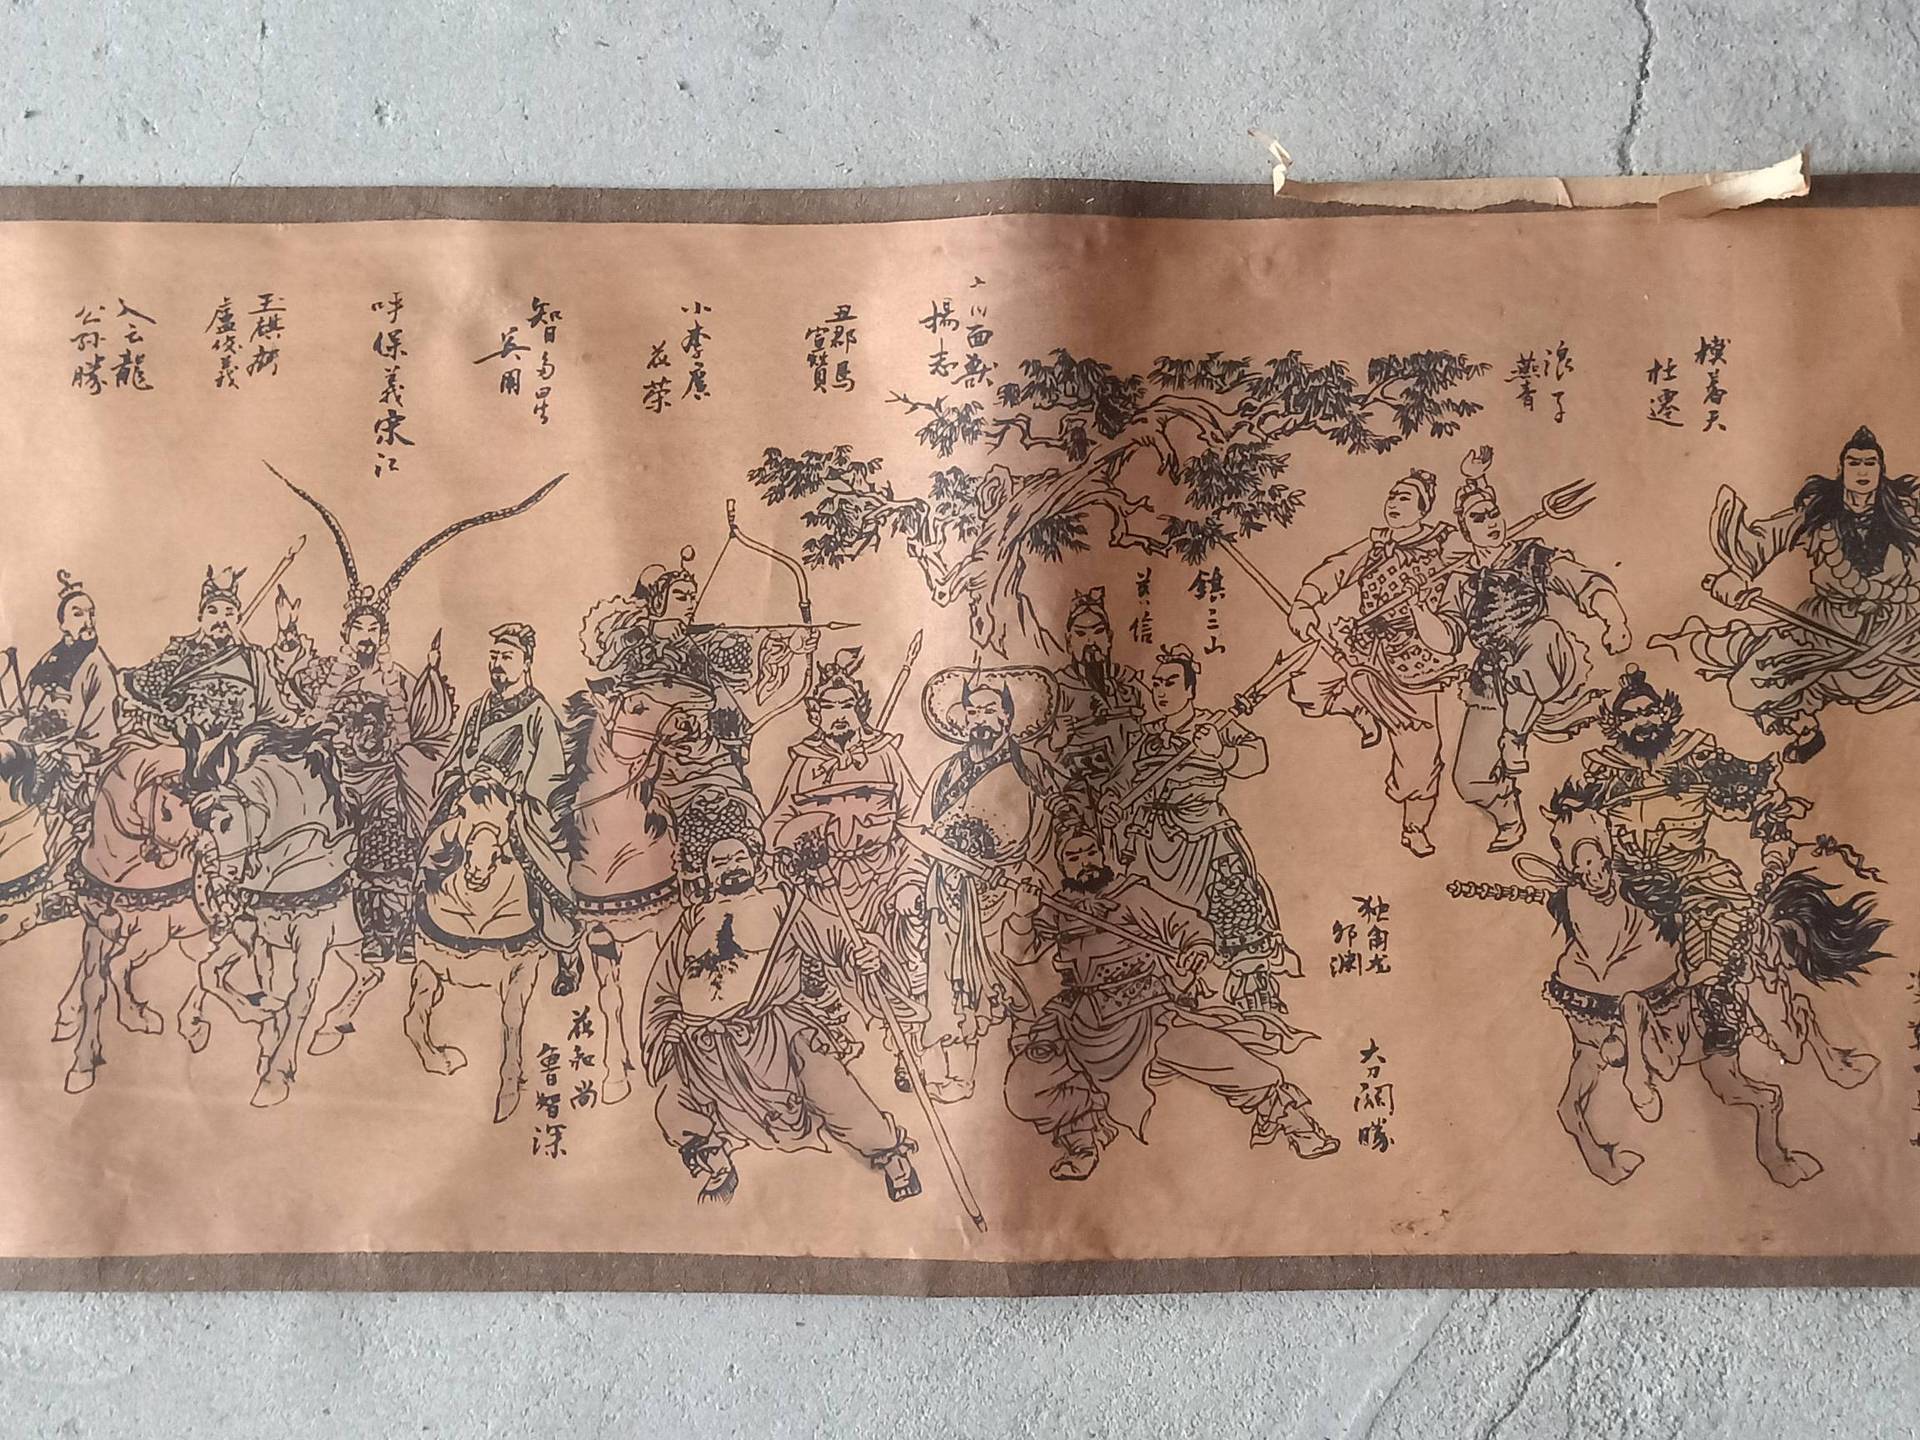 摸着天
杜遷
浪子
燕青
面獸
楊志
丑郡馬
宣贊
小李廣
花荣
智多星
吴用
呼保義宋江
玉麒麟
盧俊義
入云龍
公孙勝
鎮三山
黄信
独角龙
邹渊
大刀關勝
花和尚
魯智深